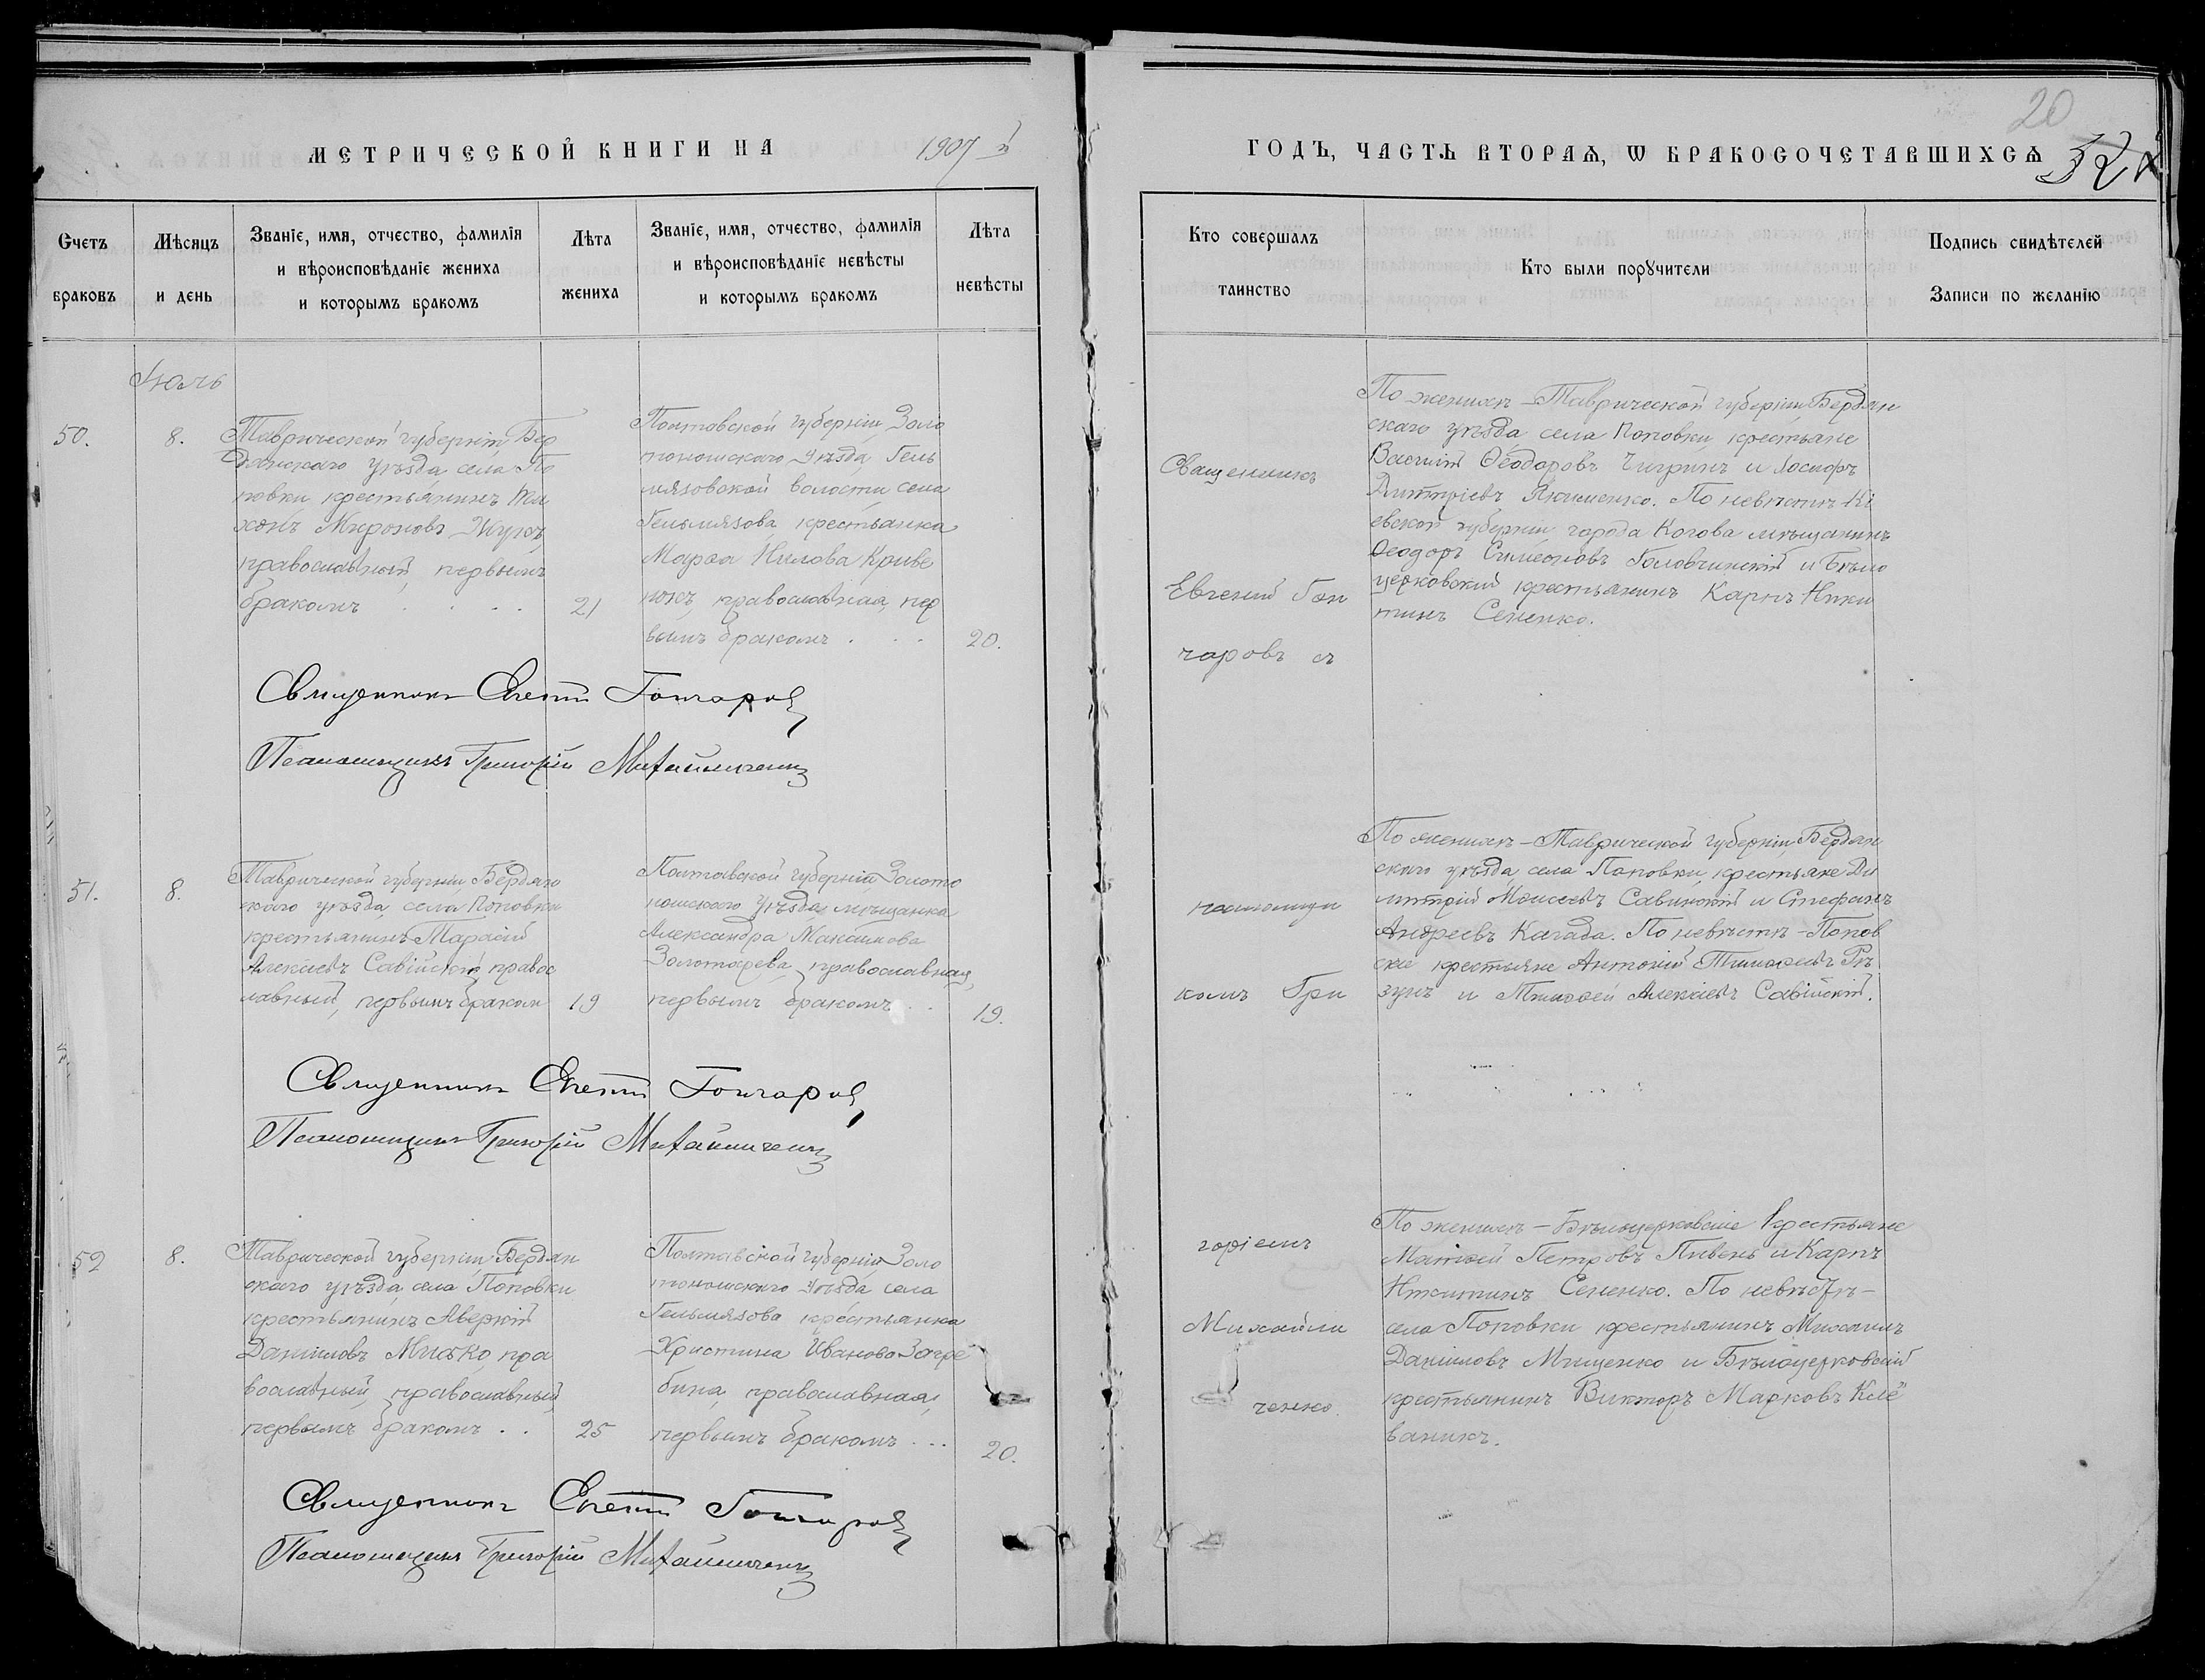 МЕТРИЧЕСКОЙ КНИГИ НА 1907 й
Счетъ браковъ
Мѣсяцъ и день
Званіе, имя, отчество, фамилія
и вѣроисповѣданіе жениха
и которымъ бракомъ
Лѣта жениха
Званіе, имя, отчество, фамилія
и вѣроисповѣданіе невѣсты
и которымъ бракомъ
Лѣта невѣсты
Іюль
50.
8.
Таврической губерніи, Бер
дянскаго уѣзда, села По
повки, крестьянинъ Ти
хонъ Мироновъ Жукъ,
православный, первымъ
бракомъ . . . .
21
Полтавской губерніи, Золо
тоношскаго уѣзда, Гель
мязовской волости села
Гельмязова, крестьянка
Марѳа Нилова Криве
нокъ, православная, пер
вымъ бракомъ . . .
20.
Священникъ Евгеній Гончаровъ
Псаломщикъ Григорій Михайличенко
51.
8.
Таврической губерніи, Бердян
скаго уѣзда, села Поповки
крестьянинъ Тарасій
Алексіевъ Савійскій, правос
лавный, первымъ браком
19
Полтавской губерніи Золото
ношскаго уѣзда, мѣщанка
Александра Максимова
Золотарева, православная,
первымъ бракомъ . .
19.
Священникъ Евгеній Гончаровъ
Псаломщикъ Григорій Михайличенко
52
8.
Таврической губерніи, Бердян
скаго уѣзда, села Поповки
крестьянинъ Аверкій
Даниловъ Мисько, пра
вославный, православный,
первымъ бракомъ . .
25
Полтавской губерніи Золо
тоношскаго уѣзда села
Гельмязова крестьянка
Христина Иванова Загре
бина, православная,
первымъ бракомъ . . .
20.
Священникъ Евгеній Гончаровъ
Псаломщикъ Григорій Михайличенко
20
ГОДЪ, ЧАСТЬ ВТОРАЯ, Ѡ БРАКОСОЧЕТАВШИХСЯ
Кто совершалъ таинство
Кто были поручители
Подпись свидѣтелей
Записи по желанію
Священникъ
Евгеній Гон
чаровъ съ
псаломщи
комъ Гри
горіемъ
Михайли
ченко.
По женихѣ – Таврической губерніи, Бердян
скаго уѣзда, села Поповки, крестьяне
Василій Ѳеодоровъ Чигринъ и Іосифъ
Димитріевъ Якименко. По невѣстѣ Кі
евской губерніи, города Канева мѣщанинъ
Ѳеодоръ Симеоновъ Головчинскій и Бѣло
церковскій крестьянинъ Карпъ Ники
тинъ Сененко.
По женихѣ – Таврической губерніи, Бердян
скаго уѣзда, села Поповки, крестьяне Ди
митрій Моисеевъ Савинскій и Стефанъ
Андреевъ Кагада. По невѣстѣ – Попов
скіе крестьяне Антоній Тимоѳеевъ Рѣ
зунъ и Тимоѳей Алексіевъ Савійскій.
По женихѣ – Бѣлоцерковскіе крестьяне
Матѳей Петровъ Пивень и Карпъ
Никитинъ Сененко. По невѣстѣ –
села Поповки крестьянинъ Михаилъ
Даниловъ Мищенко и Бѣлоцерковскій
крестьянинъ Викторъ Марковъ Клё
ваникъ.